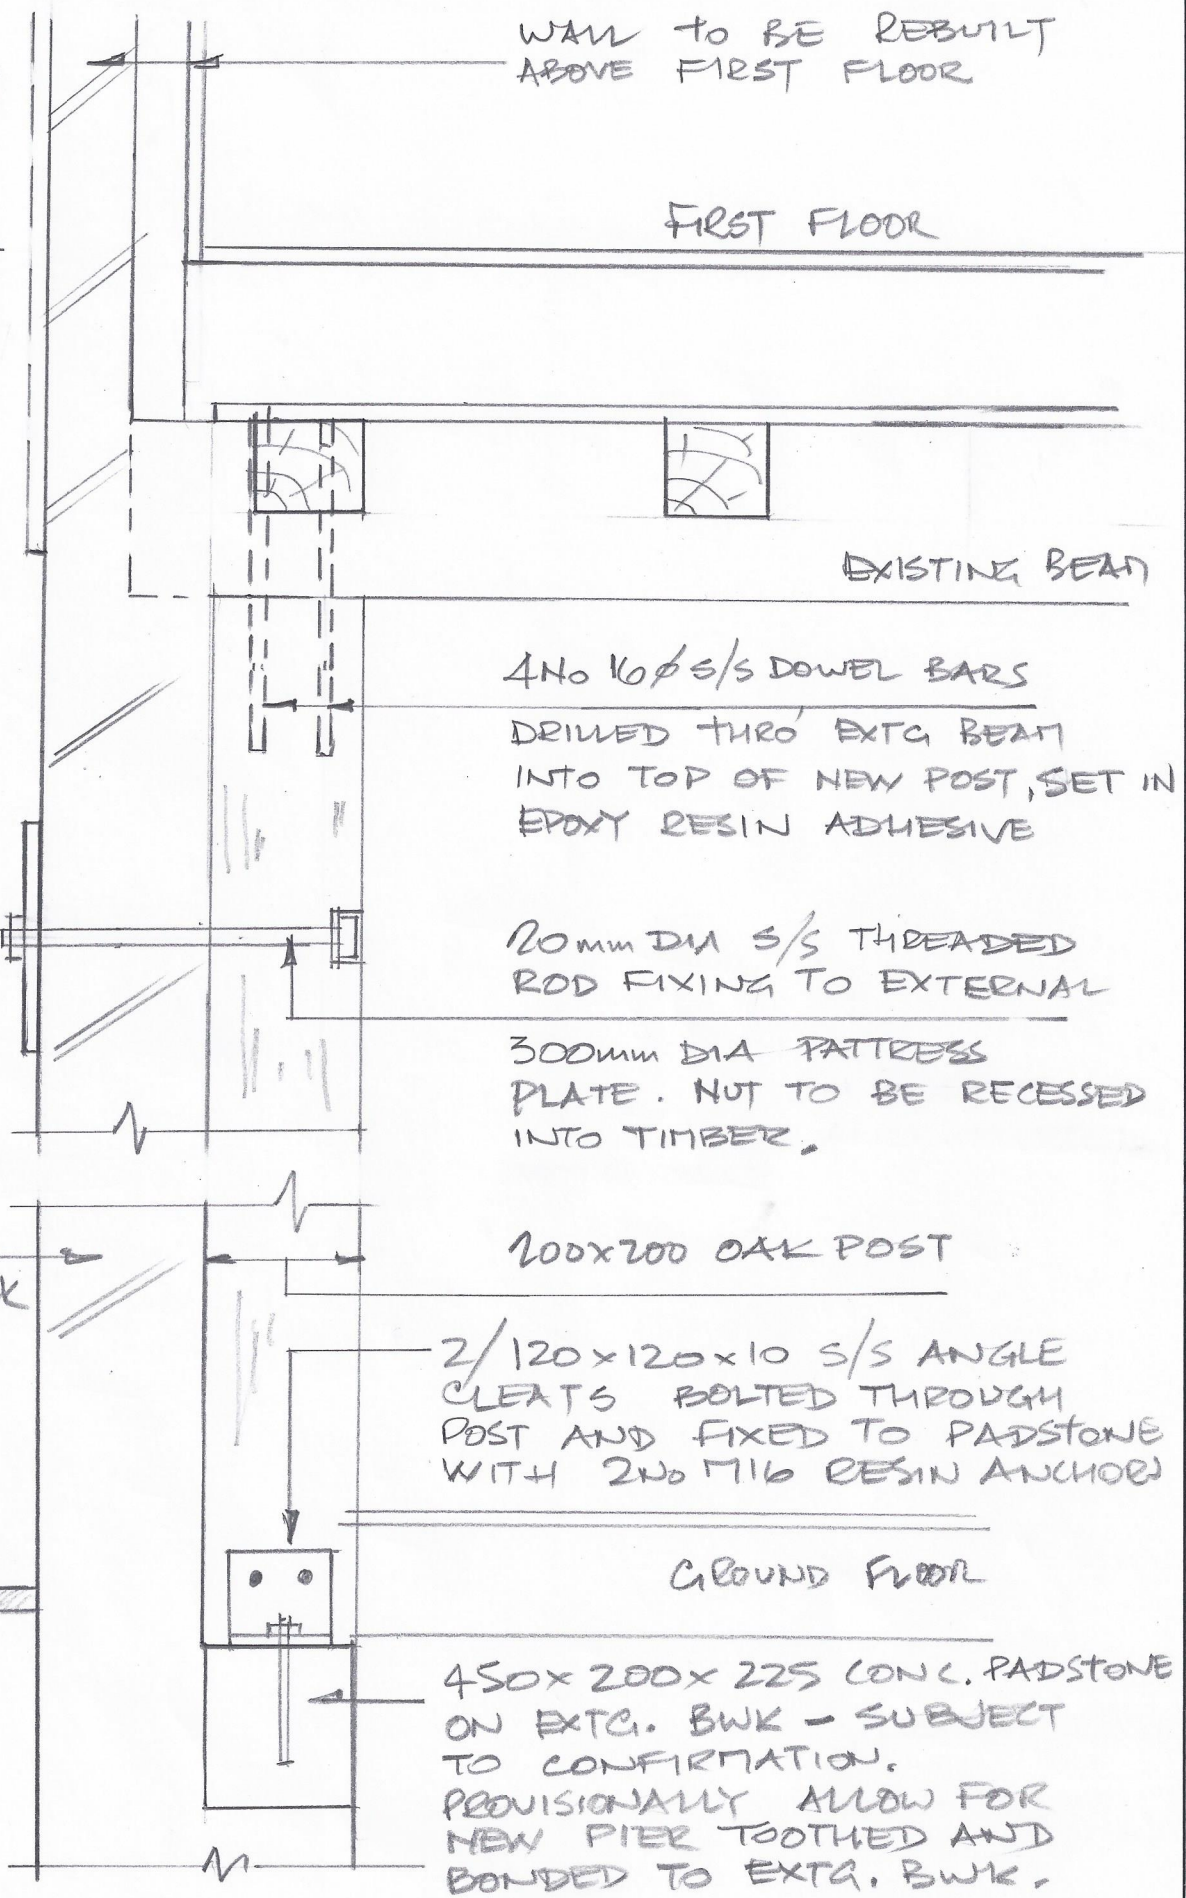 WALL TO BE REBUILT
ABOVE FIRST FLOOR
FIRST FLOOR
EXISTING BEAM
4No 16ø S/S DOWEL BARS
DRILLED THRO' EXTG BEAM
INTO TOP OF NEW POST, SET IN
EPOXY RESIN ADHESIVE
20mm DIA S/S THREADED
ROD FIXING TO EXTERNAL
300mm DIA PATTRESS
PLATE. NUT TO BE RECESSED
INTO TIMBER.
200x200 OAK POST
K
2/120x120x10 S/S ANGLE
CLEATS BOLTED THROUGH
POST AND FIXED TO PADSTONE
WITH 2No M16 RESIN ANCHORS
GROUND FLOOR
450x200x225 CONC. PADSTONE
ON EXTG. BWK - SUBJECT
TO CONFIRMATION.
PROVISIONALLY ALLOW FOR
NEW PIER TOOTHED AND
BONDED TO EXTG. BWK.